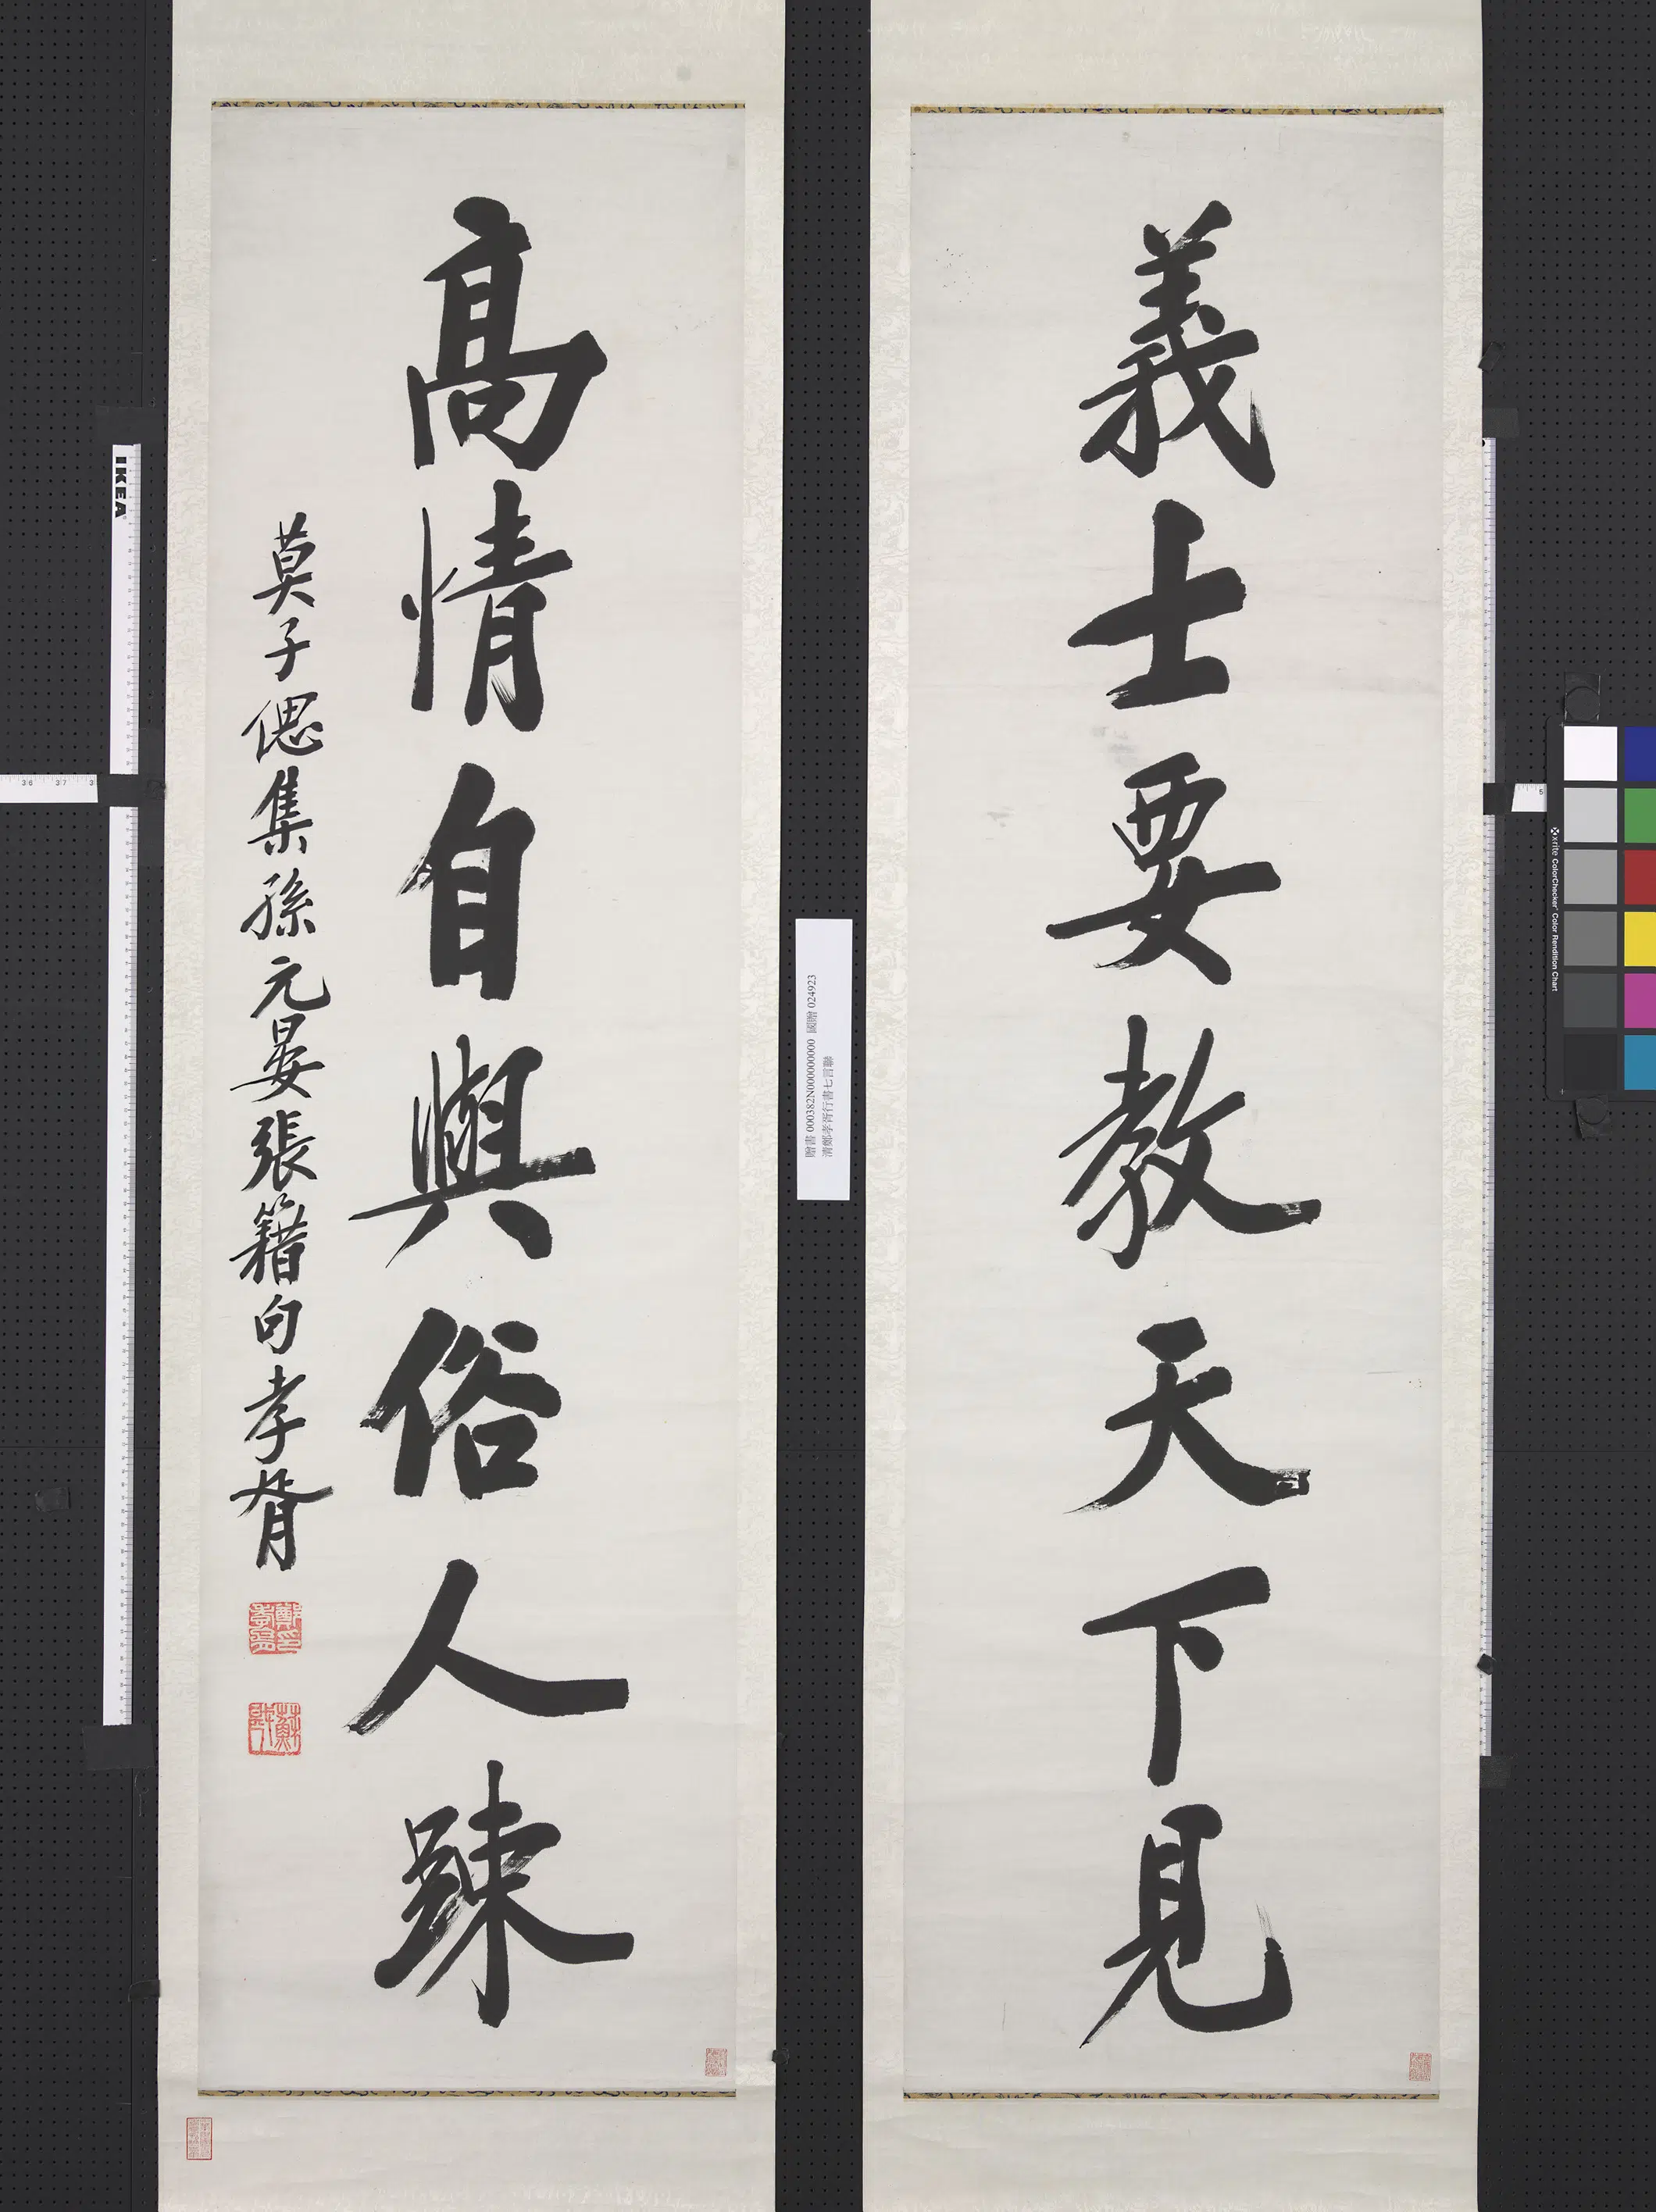 義士要教天下見
高情自與俗人踈
莫子偲集孫元晏張籍句孝胥
鄭孝胥印
蘇戡
購書 000382N000000000 圖檔 024923
清鄭孝胥行書七言聯
IKEA
36 37
5
x-rite ColorChecker Color Rendition Chart